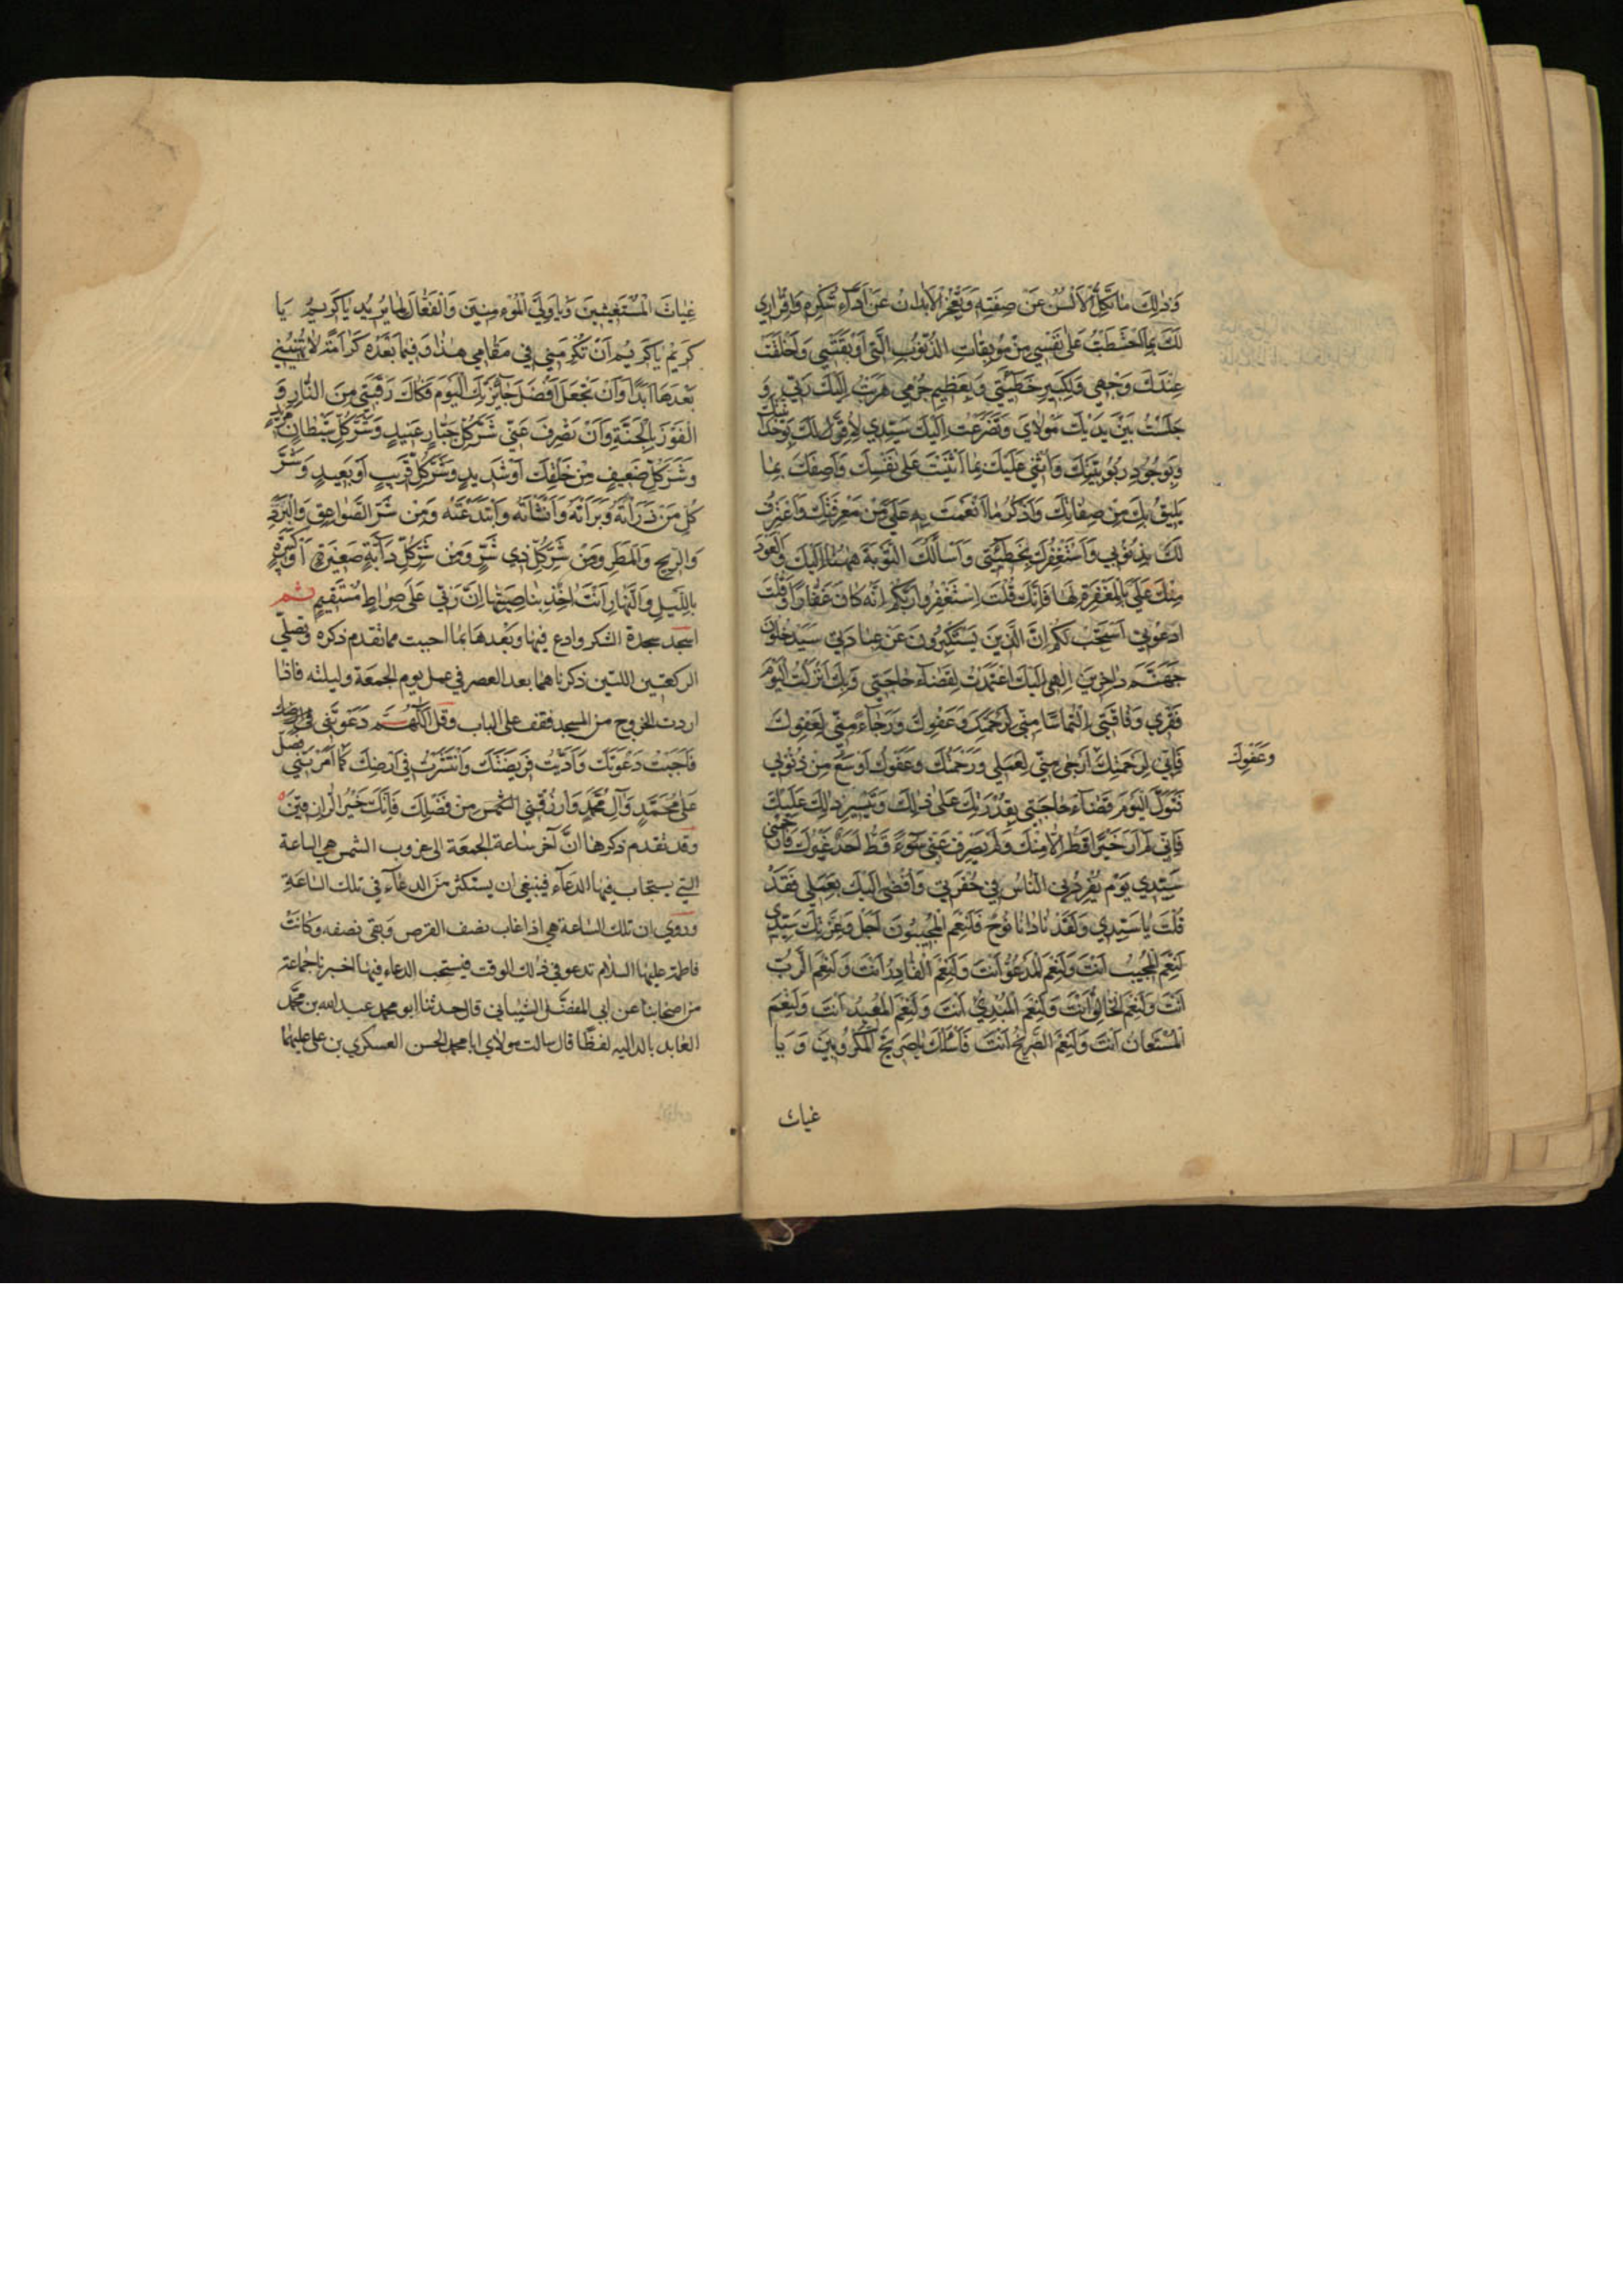 وَذٰلِكَ مٰا تَكِلُّ الْاَلْسُنُ عَنْ صِفَتِهِ وَتَعْجِزُ الْاَبْدٰانُ عَنْ اَدٰآءِ شُكْرِهِ وَاِقْرٰارِي
لَكَ بِمَا احْتَطَبْتُ عَلىٰ نَفْسِي مِنْ مُوبِقٰاتِ الذُّنُوبِ الَّتِي اَوْبَقَتْنِي وَاَخْلَقَتْ
عِنْدَكَ وَجْهِي وَلِكَبِيرِ خَطِيئَتِي وَبِعَظِيمِ جُرْمِي هَرَبْتُ اِلَيْكَ رَبِّي وَ
جَلَسْتُ بَيْنَ يَدَيْكَ مَوْلٰايَ وَتَضَرَّعْتُ اِلَيْكَ سَيِّدِي لِاُقِرَّ لَكَ بِوَحْدٰانِيَّتِكَ
وَبِوُجُودِ رُبُوبِيَّتِكَ وَاُثْنِي عَلَيْكَ بِمٰا اَثْنَيْتَ عَلىٰ نَفْسِكَ وَاَصِفُكَ بِمٰا
يَلِيقُ بِكَ مِنْ صِفٰاتِكَ وَاَذْكُرُ مٰا اَنْعَمْتَ بِهِ عَلَيَّ مِنْ مَعْرِفَتِكَ وَاَعْتَرِفُ
لَكَ بِذُنُوبِي وَاَسْتَغْفِرُكَ بِخَطِيئَتِي وَاَسْأَلُكَ التَّوْبَةَ مِنْهٰا اِلَيْكَ وَالْعَوْدَ
مِنْكَ عَلَيَّ بِالْمَغْفِرَةِ لَهٰا فَاِنَّكَ قُلْتَ اِسْتَغْفِرُوا رَبَّكُمْ اِنَّهُ كٰانَ غَفّٰاراً وَقُلْتَ
ادْعُونِي اَسْتَجِبْ لَكُمْ اِنَّ الَّذِينَ يَسْتَكْبِرُونَ عَنْ عِبٰادَتِي سَيَدْخُلُونَ
جَهَنَّمَ دٰاخِرِينَ اِلٰهِي اِلَيْكَ اعْتَمَدْتُ لِقَضٰآءِ حٰاجَتِي وَبِكَ اَنْزَلْتُ الْيَوْمَ
فَقْرِي وَفٰاقَتِي اِلْتِمٰاسًا مِنِّي لِرَحْمَتِكَ وَعَفْوِكَ وَرَجٰآءً مِنِّي لِعَفْوِكَ
وَعَفْوِكَ
فَاِنِّي لِرَحْمَتِكَ اَرْجىٰ مِنِّي لِعَمَلِي وَرَحْمَتُكَ وَعَفْوُكَ اَوْسَعُ مِنْ ذُنُوبِي
فَتَوَلَّ الْيَوْمَ قَضٰآءَ حٰاجَتِي بِقُدْرَتِكَ عَلىٰ ذٰلِكَ وَتَيَسُّرِ ذٰلِكَ عَلَيْكَ
فَاِنِّي لَمْ اَرَ خَيْرًا قَطُّ اِلّٰا مِنْكَ وَلَمْ يَصْرِفْ عَنِّي سُوٓءً قَطُّ اَحَدٌ غَيْرُكَ فَارْحَمْنِي
سَيِّدِي يَوْمَ يُفْرِدُنِي النّٰاسُ فِي حُفْرَتِي وَاُفْضِي اِلَيْكَ بِعَمَلِي فَقَدْ
قُلْتَ يٰا سَيِّدِي وَلَقَدْ نٰادٰانٰا نُوحٌ فَلَنِعْمَ الْمُجِيبُونَ اَجَلْ وَعِزَّتِكَ سَيِّدِي
لَنِعْمَ الْمُجِيبُ اَنْتَ وَلَنِعْمَ الْمَدْعُوُّ اَنْتَ وَلَنِعْمَ الْقٰادِرُ اَنْتَ وَلَنِعْمَ الرَّبُّ
اَنْتَ وَلَنِعْمَ الْخٰالِقُ اَنْتَ وَلَنِعْمَ الْمُبْدِئُ اَنْتَ وَلَنِعْمَ الْمُعِيدُ اَنْتَ وَلَنِعْمَ
الْمُسْتَعٰانُ اَنْتَ وَلَنِعْمَ الصَّرِيخُ اَنْتَ فَاَسْئَلُكَ يٰا صَرِيخَ الْمَكْرُوبِينَ وَ يٰا
غياث
غِيٰاثَ الْمُسْتَغِيثِينَ وَيٰا وَلِيَّ الْمُؤْمِنِينَ وَالْفَعّٰالَ لِمٰا يُرِيدُ يٰا كَرِيمُ يٰا
كَرِيمُ يٰا كَرِيمُ اَنْ تُكْرِمَنِي فِي مَقٰامِي هٰذٰا وَفِيمٰا بَعْدَهُ كَرٰامَةً لٰا تُهِينُنِي
بَعْدَهٰا اَبَدًا وَاَنْ تَجْعَلَ اَفْضَلَ جٰآئِزَتِكَ الْيَوْمَ فَكٰاكَ رَقَبَتِي مِنَ النّٰارِ وَ
الْفَوْزَ بِالْجَنَّةِ وَاَنْ تَصْرِفَ عَنِّي شَرَّ كُلِّ جَبّٰارٍ عَنِيدٍ وَشَرَّ كُلِّ شَيْطٰانٍ مَرِيدٍ
وَشَرَّ كُلِّ ضَعِيفٍ مِنْ خَلْقِكَ اَوْ شَدِيدٍ وَشَرَّ كُلِّ قَرِيبٍ اَوْ بَعِيدٍ وَشَرَّ
كُلِّ مَنْ ذَرَأْتَهُ وَبَرَأْتَهُ وَاَنْشَأْتَهُ وَابْتَدَعْتَهُ وَمِنْ شَرِّ الصَّوٰاعِقِ وَالْبَرْدِ
وَالرِّيحِ وَالْمَطَرِ وَمِنْ شَرِّ كُلِّ ذِي شَرٍّ وَمِنْ شَرِّ كُلِّ دٰآبَّةٍ صَغِيرَةٍ اَوْ كَبِيرَةٍ
بِاللَّيْلِ وَالنَّهٰارِ اَنْتَ اٰخِذٌ بِنٰاصِيَتِهٰا اِنَّ رَبِّي عَلىٰ صِرٰاطٍ مُسْتَقِيمٍ ثم
اسجد سجدة الشكر وادع فيها وبعدها بما احببت مما تقدم ذكره وتصلّي
الركعتين اللتين ذكرناهما بعد العصر في عمل يوم الجمعة وليلته فاذا
اردت الخروج من المسجد فقف على الباب وقل اَللّٰهُمَّ دَعَوْتَنِي
فَاَجَبْتُ دَعْوَتَكَ وَاَدَّيْتُ فَرِيضَتَكَ وَانْتَشَرْتُ فِي اَرْضِكَ كَمٰا اَمَرْتَنِي فَصَلِّ
عَلىٰ مُحَمَّدٍ وَآلِ مُحَمَّدٍ وَارْزُقْنِي مِنْ فَضْلِكَ فَاِنَّكَ خَيْرُ الرّٰازِقِينَ
وقد تقدم ذكرهنا انّ آخر ساعة الجمعة الى غروب الشمس هي الساعة
التي يستجاب فيها الدعآء فينبغي ان يستكثر من الدعآء في تلك السّاعة
وروي ان تلك السّاعة هي اذا غاب نصف القرص وبقى نصفه وكانت
فاطمة عليها السلام تدعو في ذلك الوقت فيستحب الدعاء فيها اخبرنا جماعة
من اصحابنا عن ابي المفضّل الشيباني قال حدثنا ابو محمد عبد الله بن محمّد
العابد بالدالية لفظًا قال سالت مولاي ابا محمد الحسن العسكري بن علي عليهما